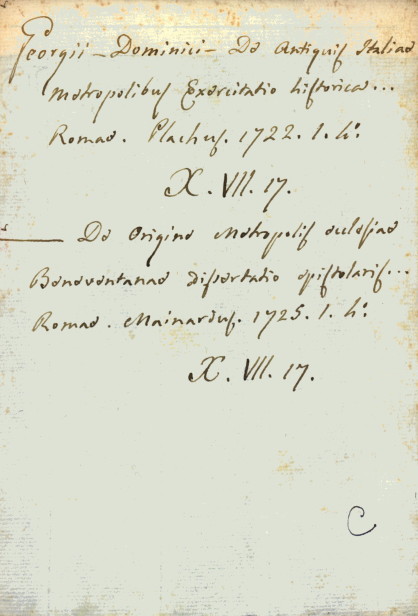 Georgii - Dominici - De Antiquis Italiae
Metropolibus Exercitatio historica...
Romae. Plachus. 1722. 1. 4°.
X. VII. 17.
De Origine Metropolis ecclesiae
Beneventanae dissertatio epistolaris...
Romae. Mainardus. 1725. 1. 4°.
X. VII. 17.
C